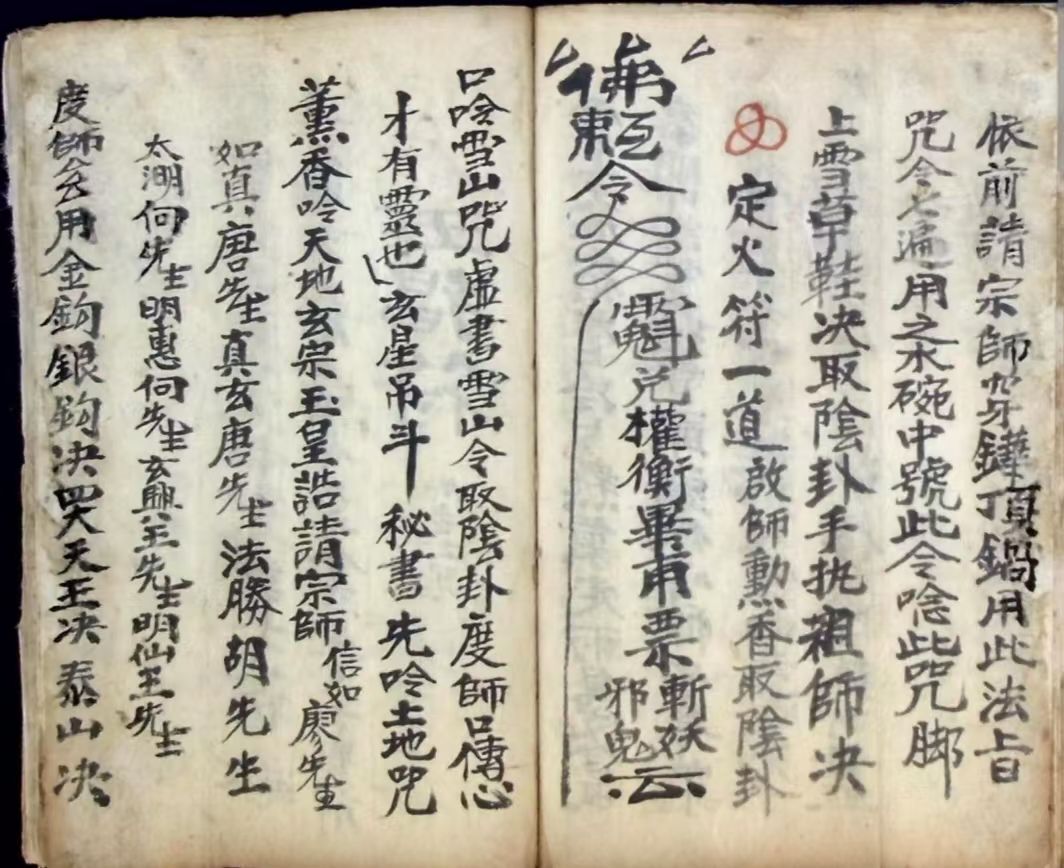 依前請宗師穿鏵頂鍋用此法旨
咒令七遍用之水碗中號此令唸此咒脚
上雪草鞋决取陰卦手执祖師决
定火符一道啟師勳香取陰卦
佛
敕令
兌權衡畢甫票
斬妖
邪鬼
口唸雪山咒虛書雪山令取陰卦度師口傳心
才有靈也玄星吊斗秘書先唅土地咒
薰香唅天地玄宗玉皇誥請宗師信如廖先生
如真唐先生真玄唐先生法勝胡先生
太湖何先生明惠何先生玄興王先生明仙王先生
度師公用金鈎銀鈎决四大天王决泰山决